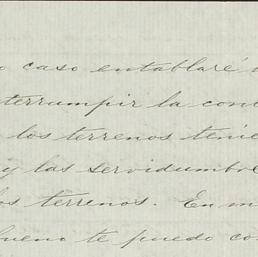 caso entablaré
terrumpir la con
los terrenos tenie
y las servidumbre
los terrenos. En m
bueno te puedo co